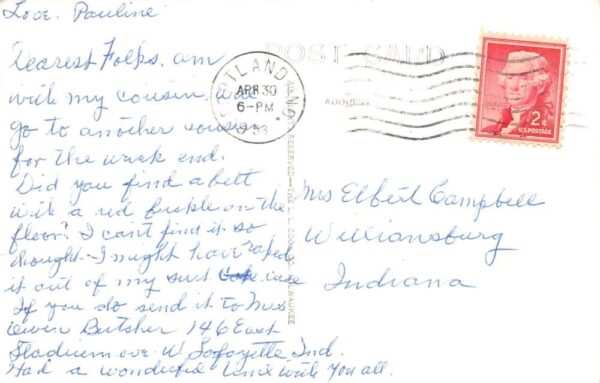 Love. Pauline
Dearest Folks. am
with my cousin, will
go to another cousin
for the week end.
Did you find a belt
with a red buckle on the
floor? I can't find it so
thought I might have
it out of my suit case
If you do send it to Mrs
Owen Butcher 146 East
Stadium ave W. Lafayette Ind.
Had a wonderful time with you all.
POST CARD
ADDRESS
PORTLAND
APR 30
6-PM
IND.
2¢
U.S. POSTAGE
Mrs Elbert Campbell
Williamsburg
Indiana
RESERVED—THE L. L. COOK CO., MILWAUKEE